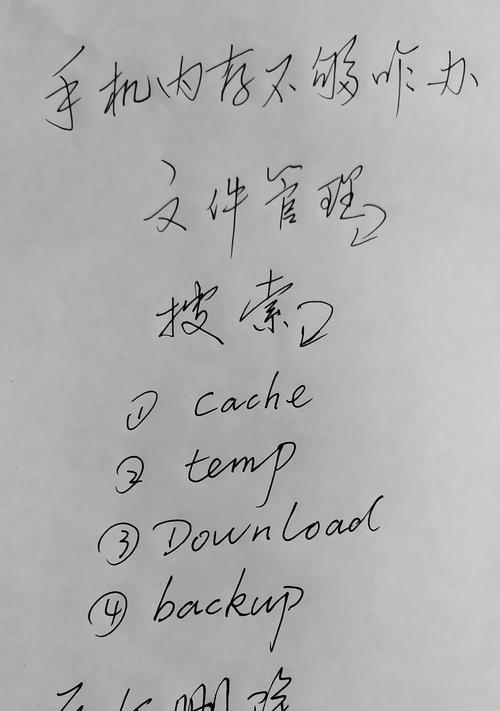 手机内存不够咋办
文件管理
搜索
① cache
② temp
③ Download
④ backup
删除